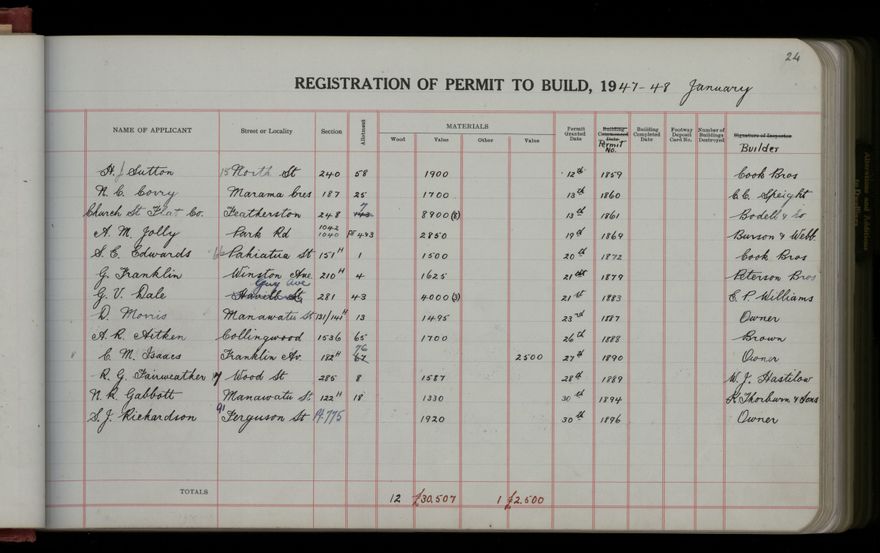 24
REGISTRATION OF PERMIT TO BUILD, 1947-48 January
NAME OF APPLICANT Street or Locality Section Allotment MATERIALS Wood Value Other Value Permit Granted Date Building Commenced Date Permit No. Building Completed Date Footway Deposit Card No. Number of Buildings Destroyed Signature of Inspector Builder
H. J Sutton 15 North St 240 58 1900 12th 1859 Cook Bros
N. C. Corry Marama Cres 187 25 1700 13th 1860 C. C. Speight
Church St Flat Co. Featherston 248 7 143 8900 (8) 13th 1861 Bodell & Co
A. M. Jolly Park Rd 1042 1040 Pt 433 2850 19th 1869 Burson & Webb
S. C. Edwards Pahiatua St 151H 1 1500 20th 1872 Cook Bros
G. Franklin Winston Ave 210H 4 1625 21st 1879 Peterson Bros
G. V. Dale Guy Ave Havelock St 281 43 4000 (3) 21st 1883 E. P. Williams
D. Morris Manawatu St 131/141H 13 1495 23rd 1887 Owner
A. R. Aitken Collingwood 1536 65 1700 26th 1888 Brown
C. M. Isaacs Franklin Av. 182H 76 67 2500 27th 1890 Owner
R. G. Fairweather 7 Wood St 285 8 1587 28th 1889 W. J. Hastilow
N. R. Gabbott Manawatu St 122H 18 1330 30th 1894 K. Thorburn & Sons
S. J. Richardson 91 Ferguson St Pt 775 1920 30th 1896 Owner
TOTALS 12 £30,507 1 £2,500
Alterations and Additions to Dwellings